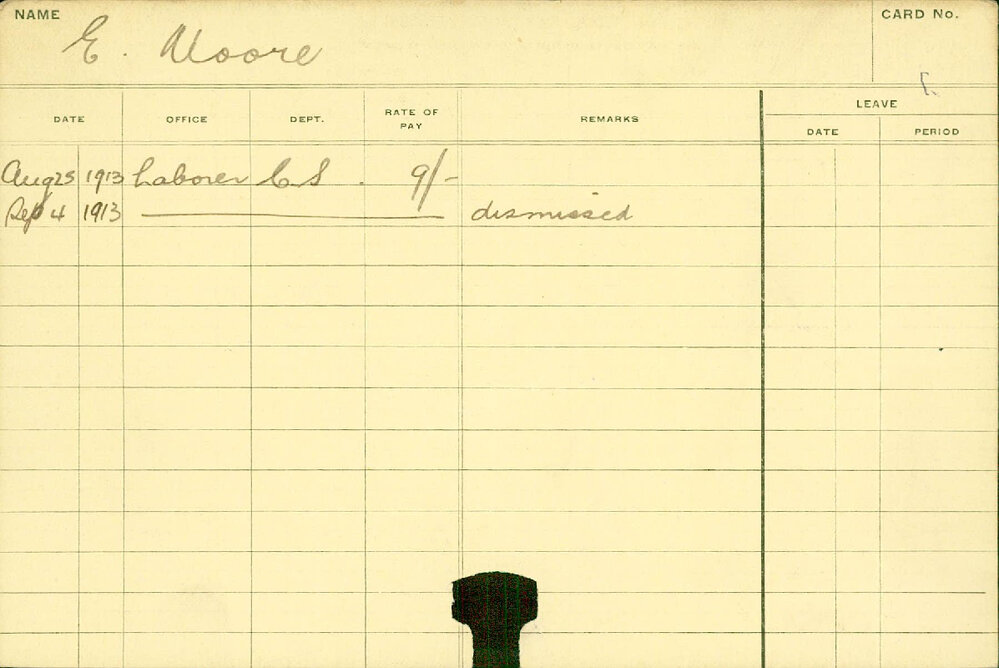 NAME E. Moore CARD No.
DATE OFFICE DEPT. RATE OF PAY REMARKS LEAVE
DATE PERIOD
Aug 25 1913 Laborer C S. 9/-
Sep 4 1913 dismissed